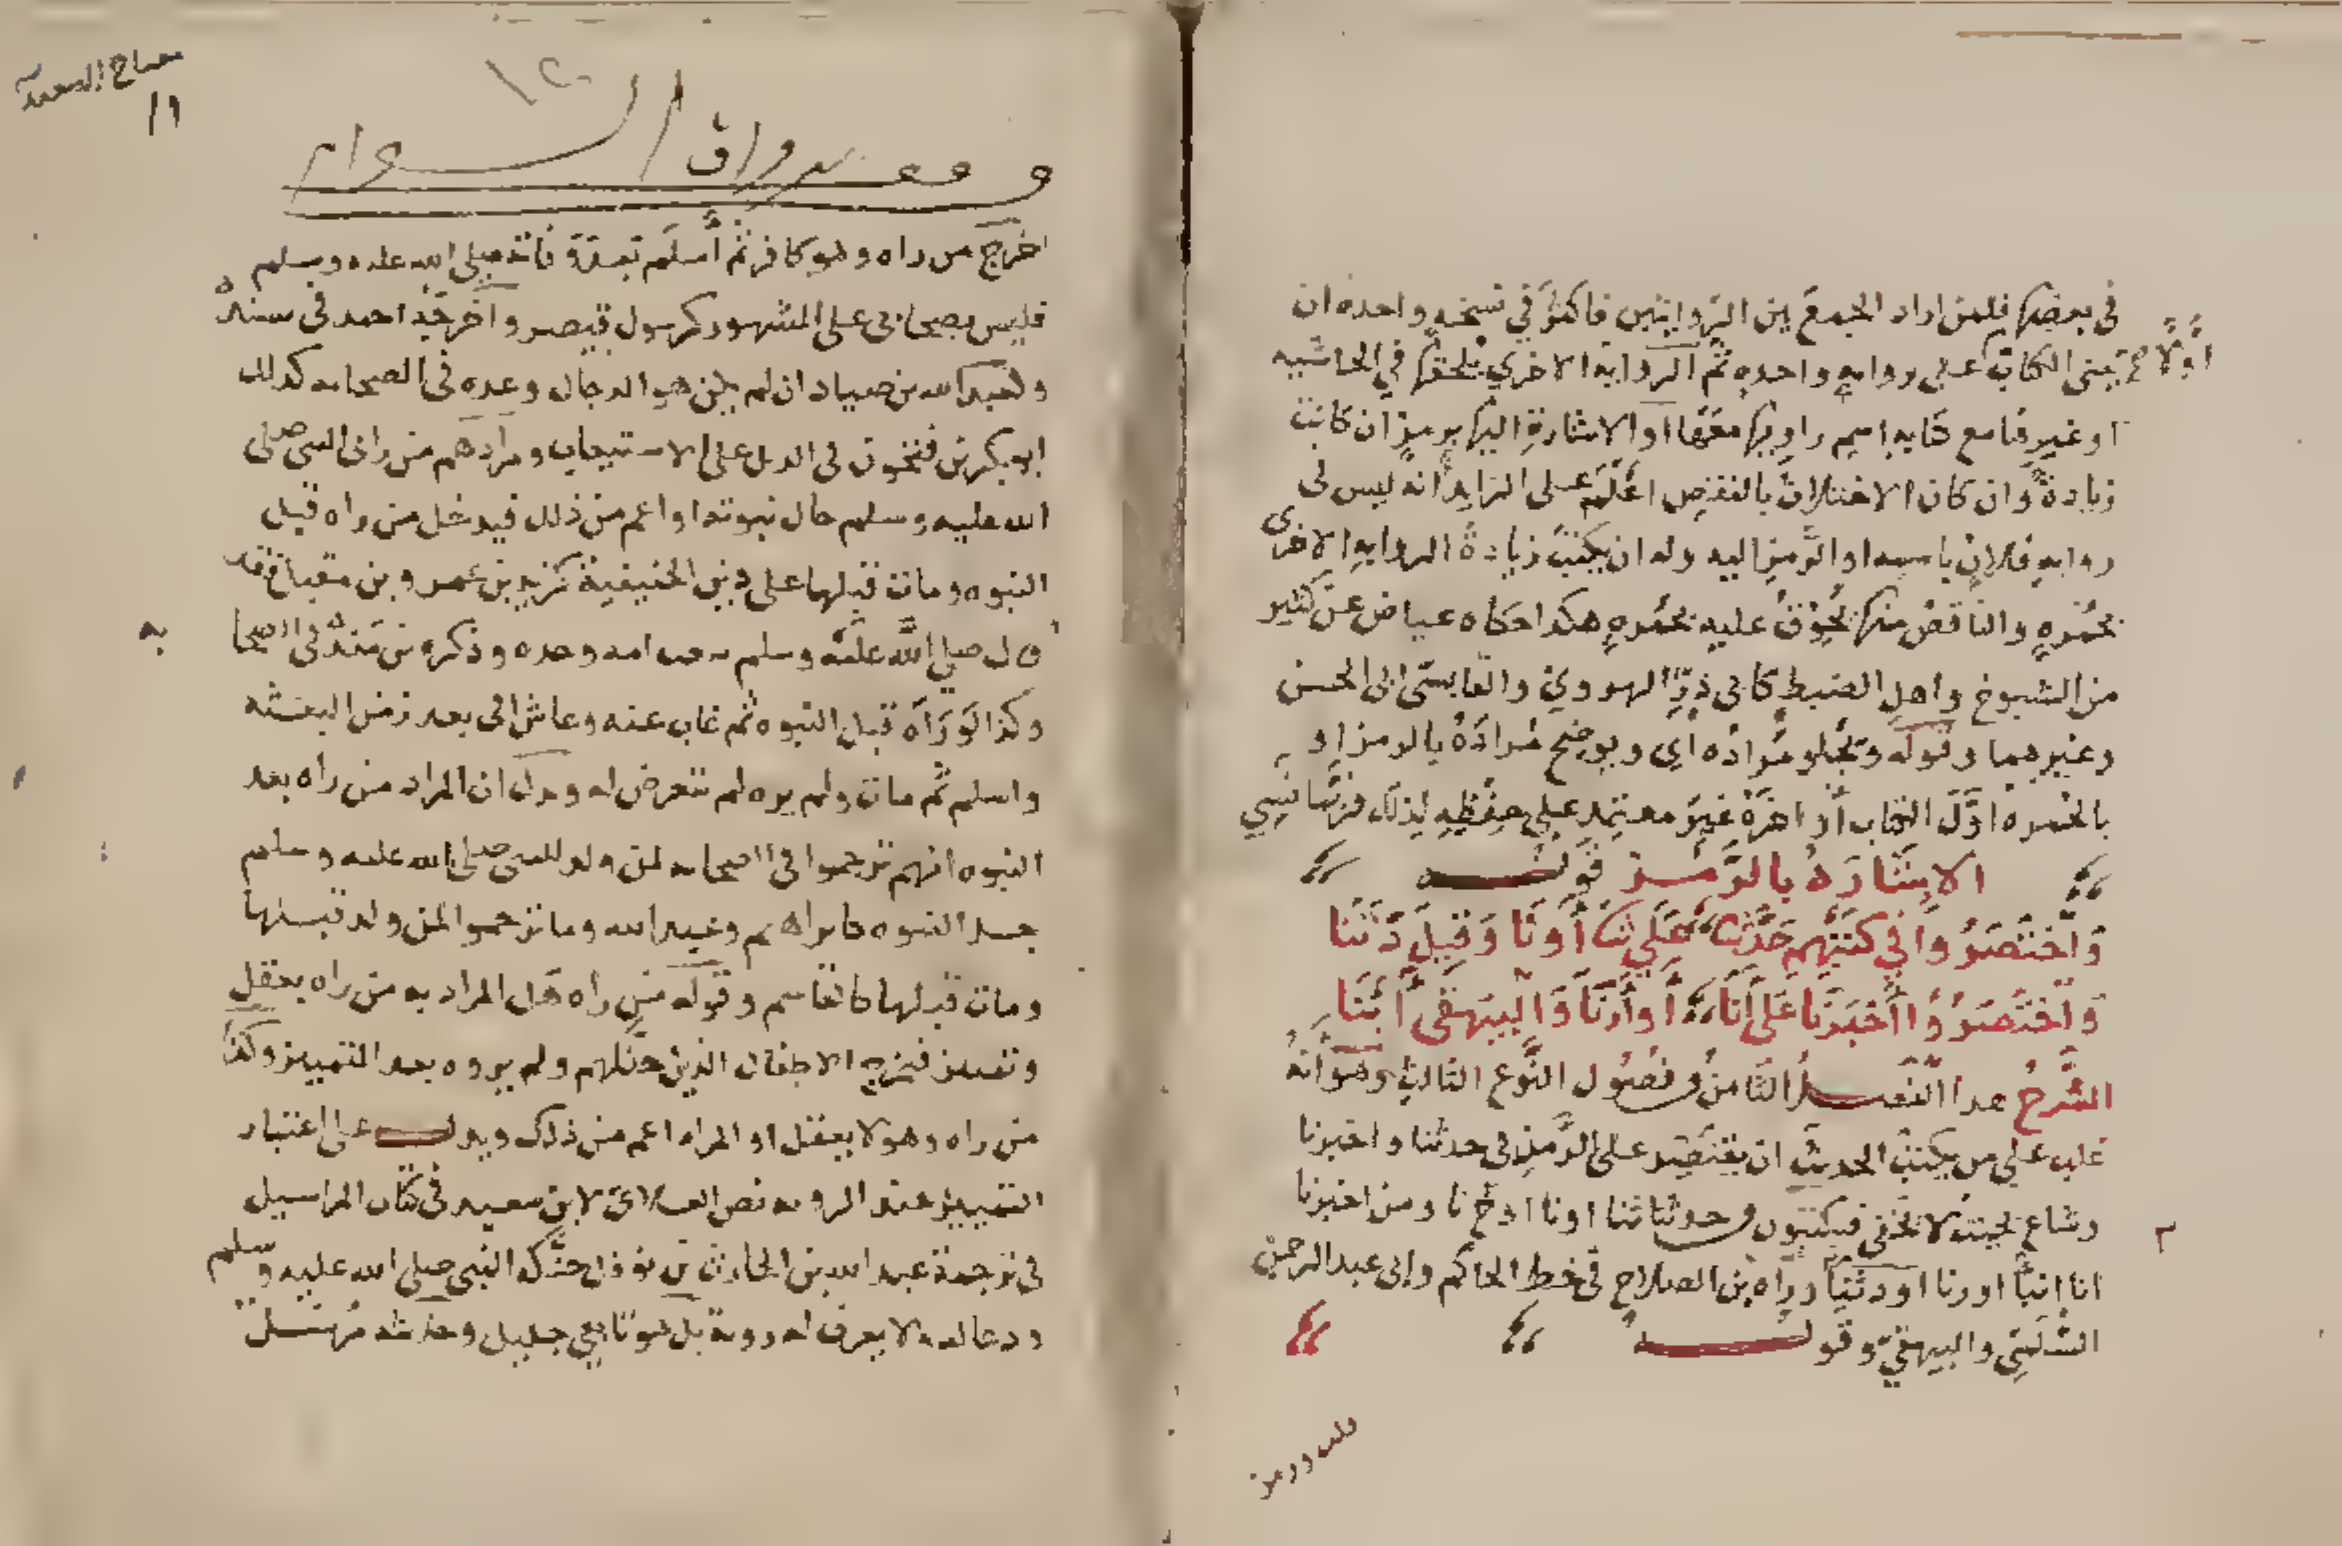 في بعضها فلمن اراد الجمع بين الروايتين فاكثر في نسخه واحده ان
اولا يبني الكتاب على روايه واحده ثم الروايه الاخري يلحقها في الحاشيه
او غيرها مع كتابه اسم راويها معها او الاشارة اليها برمز ان كانت
زيادة وان كان الاختلاف بالنقص اعلم على الزايد انه ليس في
روايه فلان باسمه او الرمز اليه وله ان يكتب زيادة الروايه الاخرى
بحمره والناقص منها يحوق عليه بحمره هكذا حكاه عياض عن كثير
من الشيوخ واهل الضبط كابي ذر الهروي والقابسي ابي الحسن
وغيرهما وقوله ويجلو مراده اي ويوضح مراده بالرمز او
بالحمره اول الكتاب او اخره غير معتمد على حفظه لذلك فربما نسي
الاشارة بالرمز قوله
واختصروا في كتبهم حدثنا على ثنا أو نا وقيل دثنا
واختصروا اخبرنا على انا أو أرنا والبيهقي أبنا
الشرح هذا الفصل الثامن من فصول النوع الثالث وهو انه
غلب على من يكتب الحديث ان يقتصر على الرمز في حدثنا واخبرنا
وشاع بحيث لا يخفى فيكتبون من حدثنا ثنا او نا او دثنا ومن اخبرنا
٢
انا انبا او رنا او دثنا رراه بن الصلاح في خط الحاكم وابي عبد الرحمن
السلمي والبيهقي وقوله
قلت ورمز
١٢٠
١١
اخرج من راه وهو كافر ثم أسلم بعد وفاته صلى الله عليه وسلم
فليس بصحابي على المشهور كرسول قيصر واخرجه احمد في سنده
ولعبد الله بن صياد ان لم يكن هو الدجال وعده في الصحابه كذلك
ابو بكر بن فتحون في الديل على الاستيعاب ومرادهم من رأى النبي صلى
الله عليه وسلم حال نبوته او اعم من ذلك فيدخل من راه قبل
النبوه ومات قبلها على دين الحنيفية كزيد بن عمرو بن فقد
قال صلى الله عليه وسلم يبعث امه وحده وذكره بن منده في الصحا
به
وكذا لو رآه قبل النبوه ثم غاب عنه وعاش الى بعد زمن البعثه
واسلم ثم مات ولم يره لم نتعرض له ويدل ان المراد من راه بعد
النبوه انهم ترجموا في الصحابه لمن ولد للنبي صلى الله عليه وسلم
بعد النبوه كابراهيم وعبد الله وما ترجموا لمن ولد قبلها
ومات قبلها كالقاسم وقوله من راه هل المراد به من راه بعقل
وتمييز فيخرج الاطفال الذين حنكهم ولم يروه بعد التمييز وكذا
من راه وهو لا يعقل او المراد اعم من ذلك ويدل على اعتبار
التمييز عند الرويه نص العلائي لابن سعيد في كتاب المراسيل
في ترجمة عبد الله بن الحارث بن نوفل حنكه النبي صلى الله عليه وسلم
ودعا له ولا يعرف له رويه بل هو تابعي جليل وحديثه مرسل